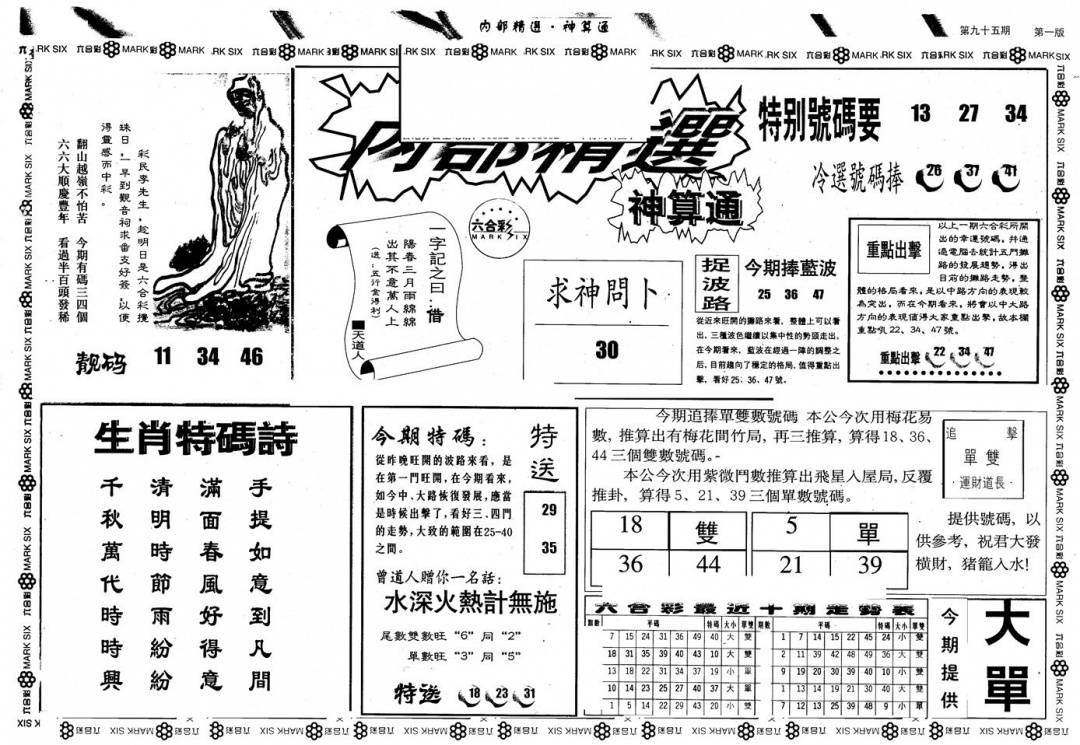 内部精選·神算通
第九十五期
第一版
六合彩 MARK SIX
彩民李先生,趁明日是六合彩攪
珠日,一早到觀音祠求番支好簽,以便
得靈感而中彩。
翻山越嶺不怕苦 今期有碼三四個
六六大順慶豐年 看過半百頭發稀
靚码 11 34 46
内部精選
神算通
六合彩
MARK SIX
一字記之曰:借
陽春三月雨綿綿
出其不意萬人上
(送:五行金得利)
■天道人
求神問卜
30
特别號碼要 13 27 34
冷選號码捧 26 37 41
捉波路
今期捧藍波
25 36 47
從近來旺開的攤路來看,整體上可以看
出,三種波色繼續以集中性的勢頭走出,
在今期看來,藍波在經過一陣的調整之
后,目前趨向了穩定的格局,值得重點出
擊,看好25、36、47號。
重點出擊
以上一期六合彩所開
出的幸運號碼,并通
過電腦去統計五門攤
路的發展趨勢,得出
目前的攤路走勢,整
體的格局看來,是以中路方向的表現較
為突出,而在今期看來,將會以中大路
方向的表現值得大家重點出擊,故本欄
重點吼22、34、47號。
重點出擊 22 34 47
生肖特碼詩
手提如意到凡間
滿面春風好得意
清明時節雨紛紛
千秋萬代時時興
今期特碼:
從昨晚旺開的波路來看,是
在第一門旺開,在今期看來,
如今中、大路恢復發展,應當
是時候出擊了,看好三、四門
的走勢,大致的範圍在25-40
之間。
特送
29
35
曾道人贈你一名話:
水深火熱計無施
尾數雙數旺“6”同“2”
單數旺“3”同“5”
特送 18 23 31
今期追捧單雙數號碼 本公今次用梅花易
數,推算出有梅花間竹局,再三推算,算得18、36、
44三個雙數號碼。-
本公今次用紫微鬥數推算出飛星入屋局,反覆
推卦,算得5、21、39三個單數號碼。
追擊
單雙
·運財道長·
18 雙 5 單
36 44 21 39
提供號碼,以
供參考,祝君大發
橫財,猪籠入水!
六合彩最近十期走勢表
期數 平碼 特碼 大小 單雙 期數 平碼 特碼 大小 單雙
7 15 24 31 36 49 40 大 雙 1 7 14 15 22 45 24 小 雙
18 31 35 39 40 43 10 大 雙 2 11 39 42 48 49 36 大 雙
13 18 22 31 34 37 19 小 單 9 19 20 30 39 40 10 小 雙
10 14 23 25 27 40 37 大 單 1 13 14 19 21 30 40 大 雙
1 5 14 22 29 43 20 小 雙 7 12 13 25 39 48 9 小 單
今期提供
大單